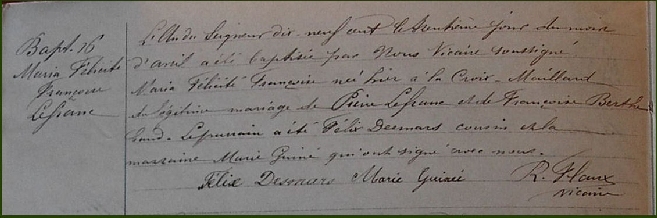 Bapt. 16
Maria Félicité
Françoise
Lefranc
L'An du Seigneur dix neuf cent le trentième jour du mois
d'avril a été baptisée par Nous Vicaire soussigné
Maria Félicité Françoise née hier à la Croix-Maillard
du légitime mariage de Pierre Lefranc et de Françoise Berthe
laud. Le parrain a été Félix Desmars cousin et la
marraine Marie Guiné qui ont signé avec nous.
Félix Desmars Marie Guinée R. Flaux
Vicaire